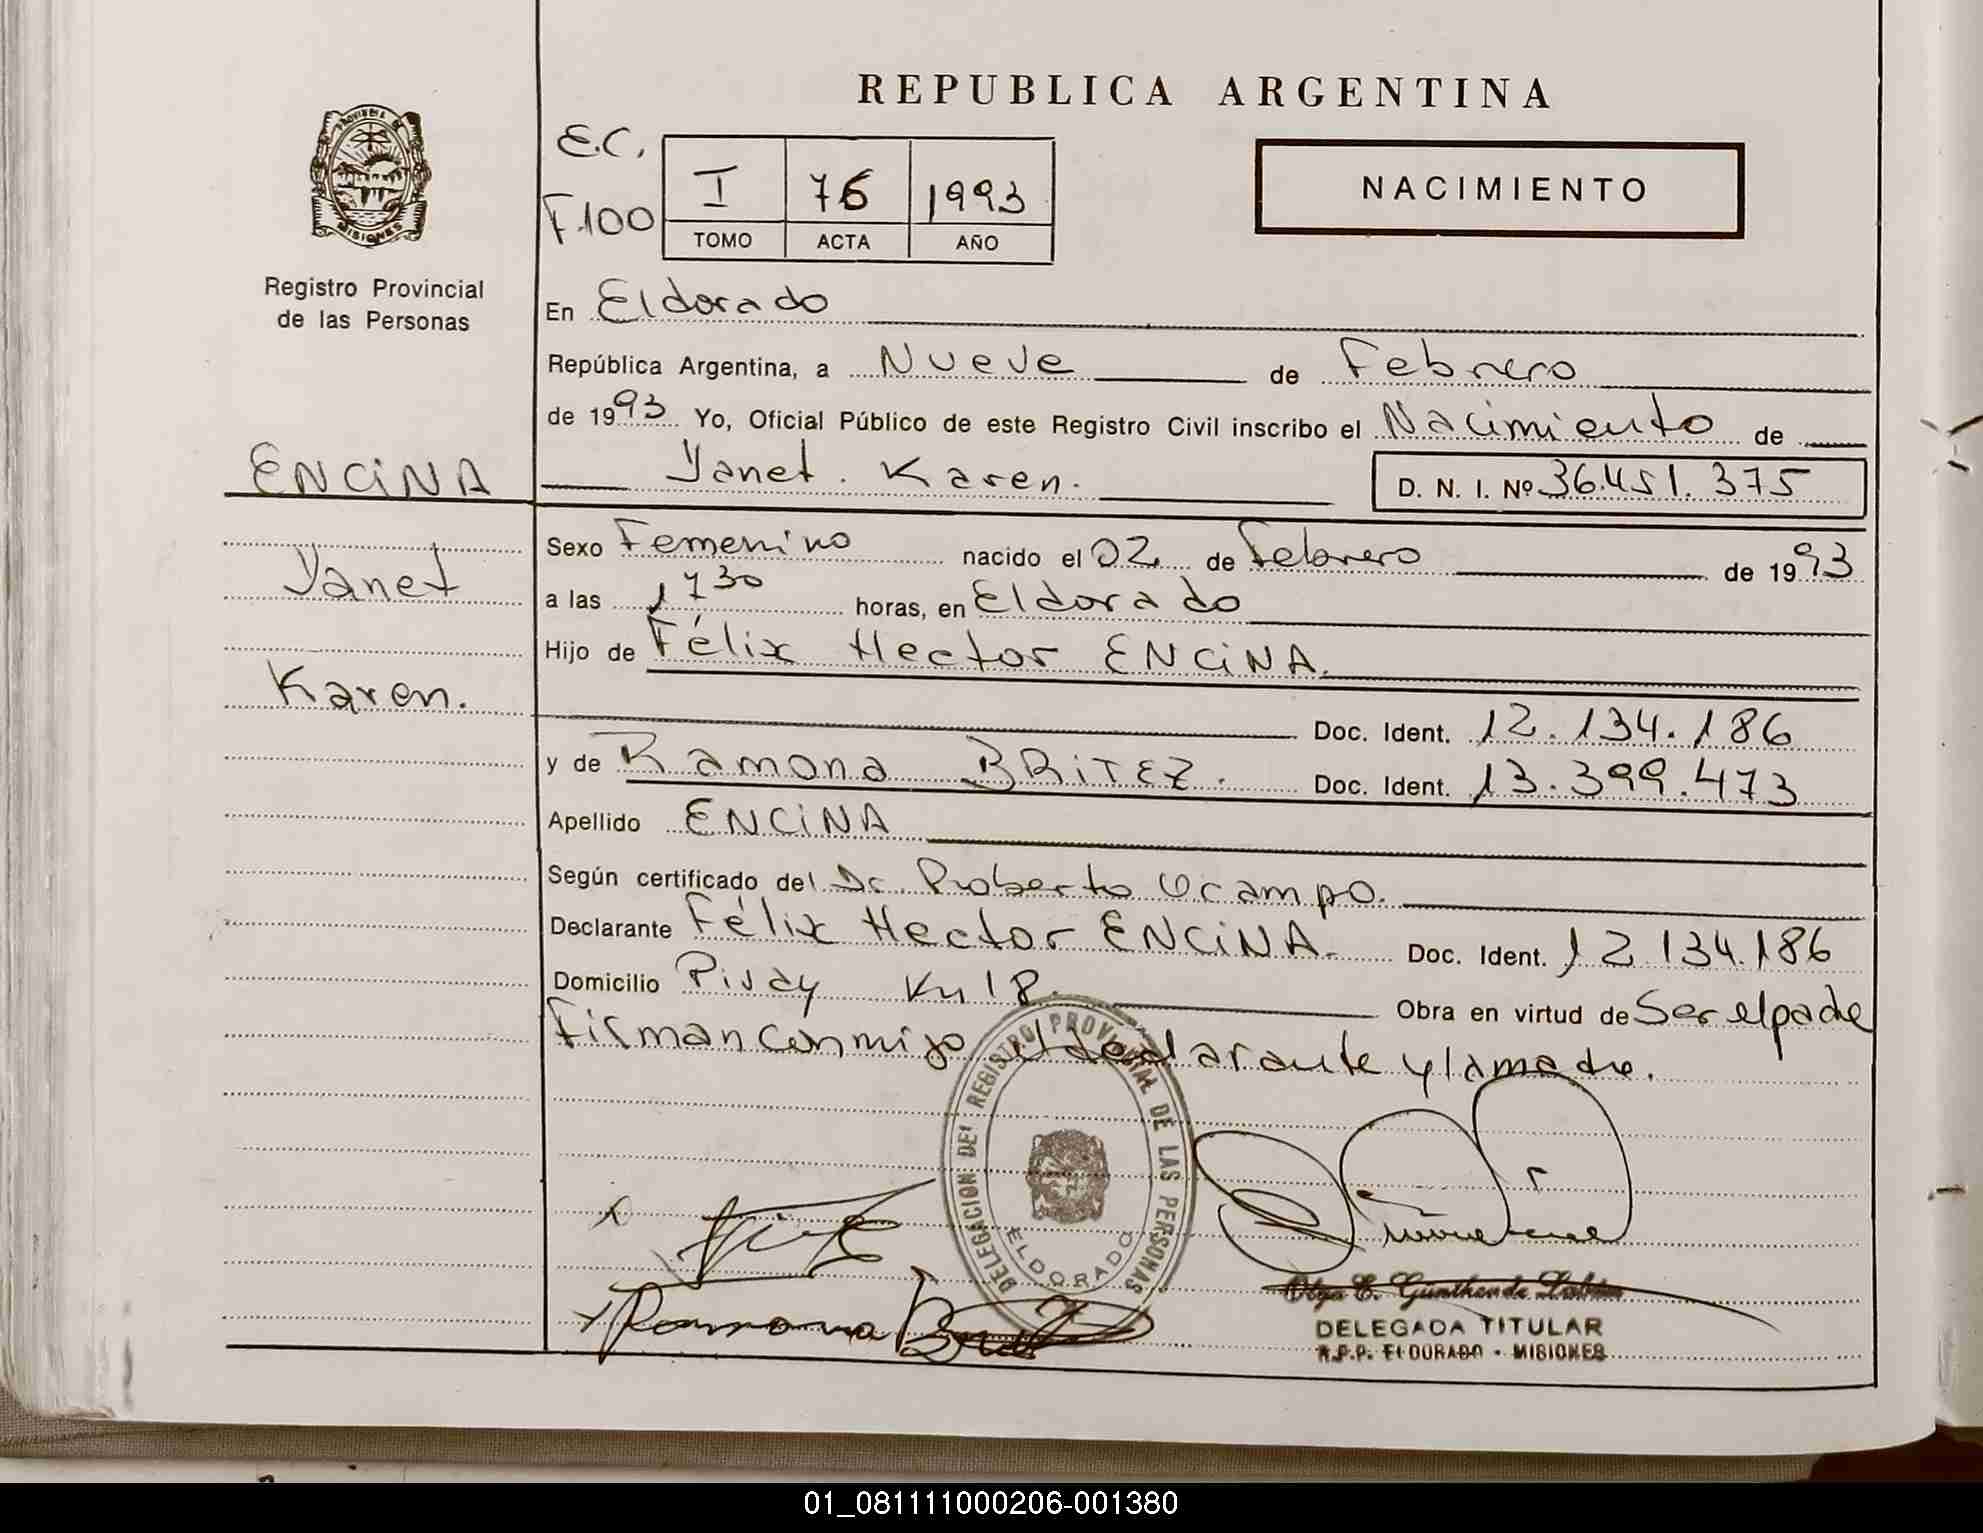 REPUBLICA ARGENTINA
PROVINCIA DE MISIONES
Registro Provincial
de las Personas
E.C.
F.100
I 76 1993
TOMO ACTA AÑO
NACIMIENTO
En Eldorado
República Argentina, a Nueve de Febrero
de 1993 Yo, Oficial Público de este Registro Civil inscribo el Nacimiento de
Yanet. Karen. D. N. I. Nº 36.451.375
ENCINA
Yanet
Karen.
Sexo Femenino nacido el 02 de Febrero de 1993
a las 1730 horas, en Eldorado
Hijo de Félix Hector ENCINA.
Doc. Ident. 12.134.186
y de Ramona BRITEZ. Doc. Ident. 13.399.473
Apellido ENCINA
Según certificado del Dr. Roberto Ocampo.
Declarante Félix Hector ENCINA. Doc. Ident. 12.134.186
Domicilio Piray Km 18. Obra en virtud de Ser el padre
Firman conmigo el declarante y la madre.
DELEGACION DEL REGISTRO PROVINCIAL DE LAS PERSONAS
ELDORADO
Ramona
Olga E. 
DELEGADA TITULAR
R.P.P. ELDORADO - MISIONES
01_081111000206-001380